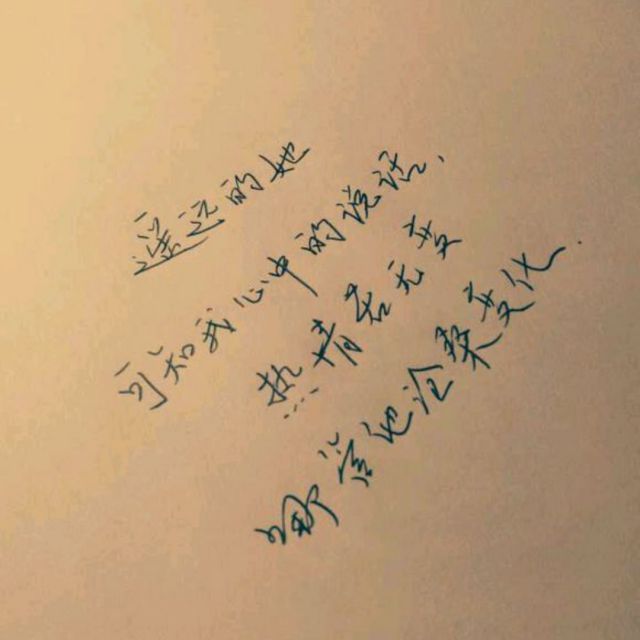 遥远的她
可知我心中的说话,
热情若无变
那管他沧桑变化.